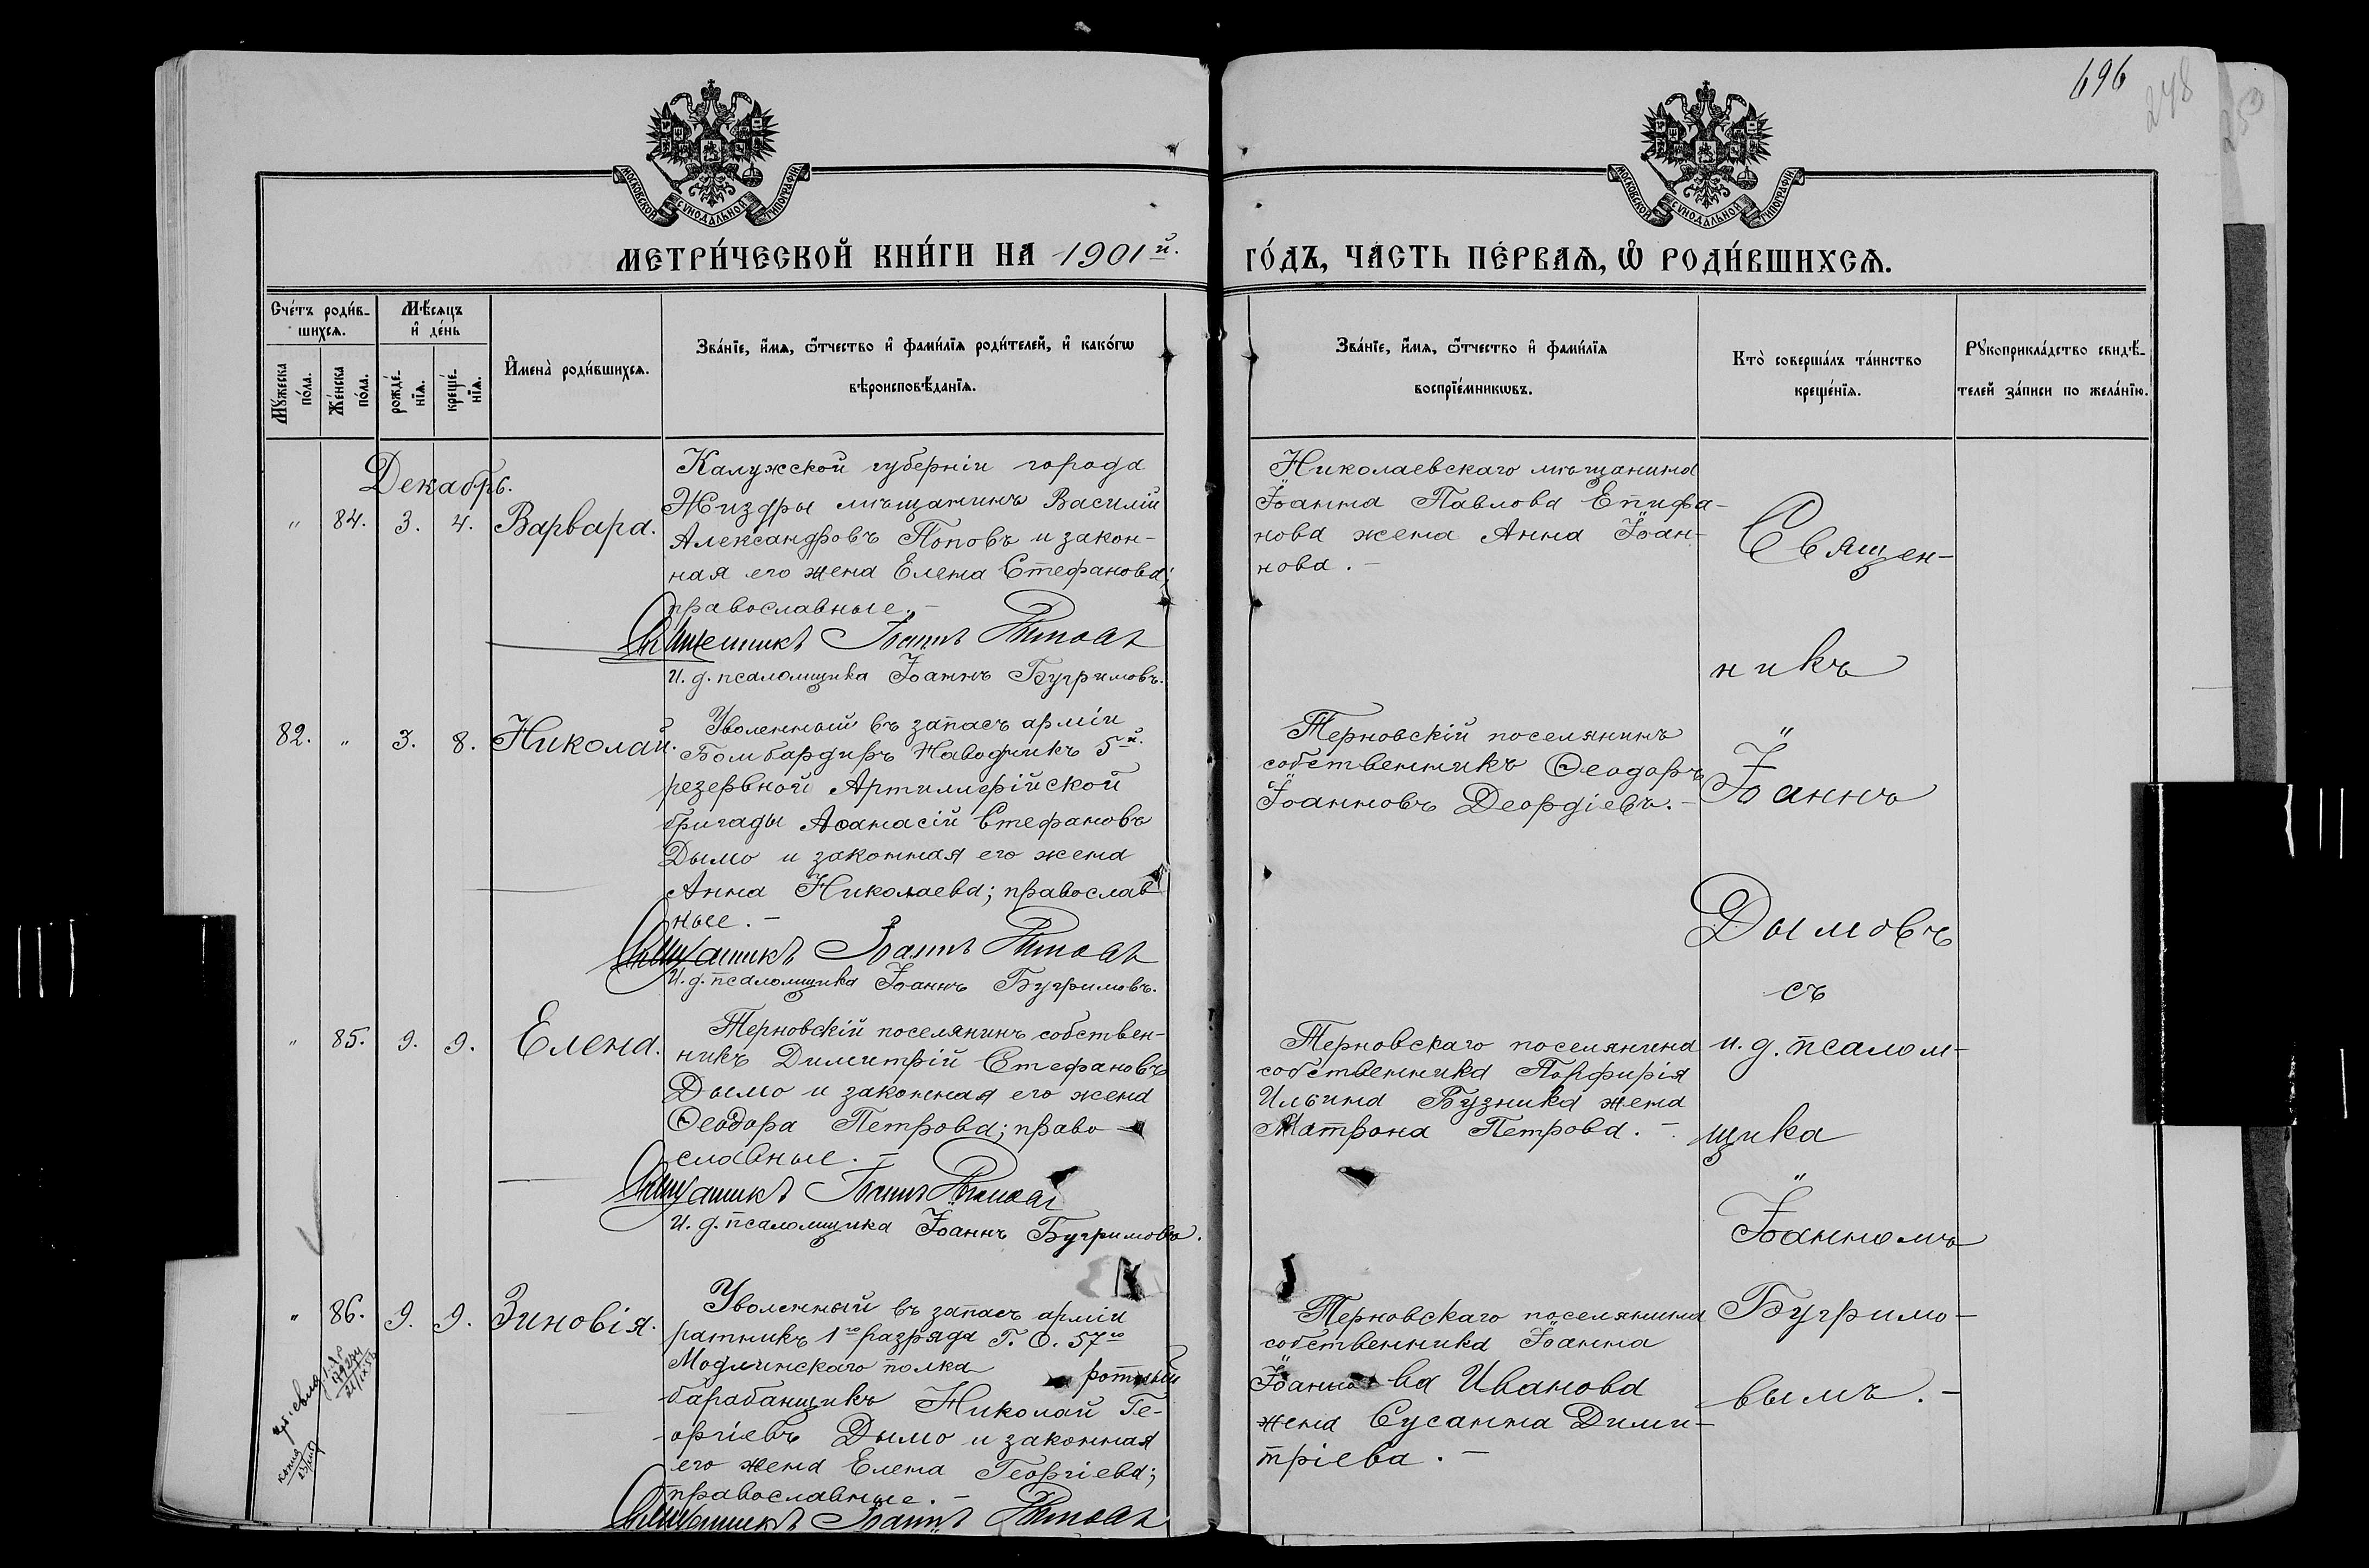 696
248
250
МОСКОВСКОЙ СѴНОДАЛЬНОЙ ТИПОГРАФІИ
МОСКОВСКОЙ СѴНОДАЛЬНОЙ ТИПОГРАФІИ
МЕТРИ́ЧЕСКОЙ КНИ́ГИ НА 1901й.
ГО́ДЪ, ЧА́СТЬ ПЕ́РВАѦ, Ѡ҆ РОДИ́ВШИХСѦ.
Сче́тъ роди́в-
шихсѧ.
Мꙋ́жеска по́ла.
Же́нска по́ла.
Мѣ́сяцъ
и҆ де́нь
рожде́-
нїѧ.
креще́-
нїѧ.
И҆мена̀ роди́вшихсѧ.
Зва́нїе, и҆́мѧ, ѻ҆́тчество и҆ фами́лїѧ роди́телей, и҆ како́гѡ
вѣроисповѣ́данїѧ.
Зва́нїе, и҆́мѧ, ѻ҆́тчество и҆ фами́лїѧ
воспрїе́мникѡвъ.
Кто̀ соверша́лъ та́инство
креще́нїѧ.
Рꙋкоприкла́дство свидѣ́-
телей за́писи по жела́нїю.
Декабрь.
" 84. 3. 4. Варвара.
Калужской губерніи города
Жиздры мѣщанинъ Василій
Александровъ Поповъ и закон-
ная его жена Елена Стефанова;
православные.-
Священникъ Іоаннъ Дымовъ
И. д. псаломщика Іоаннъ Бугримовъ.
Николаевскаго мѣщанина
Іоанна Павлова Епифа-
нова жена Анна Іоан-
нова.-
82. " 3. 8. Николай.
Уволенный въ запасъ арміи
Бомбардиръ Наводчикъ 5й.
резервной Артиллерійской
бригады Аѳанасій Стефановъ
Дымо и законная его жена
Анна Николаева; православ
ные.-
Священникъ Іоаннъ Дымовъ
И. д. псаломщика Іоаннъ Бугримовъ.
Терновскій поселянинъ
собственникъ Ѳеодоръ
Іоанновъ Деордіевъ.-
" 85. 9. 9. Елена.
Терновскій поселянинъ собствен-
никъ Димитрій Стефановъ
Дымо и законная его жена
Ѳеодора Петрова; право-
славные.-
Священникъ Іоаннъ Дымовъ
И. д. псаломщика Іоаннъ Бугримовъ.
Терновскаго поселянина
собственника Порфирія
Ильина Бузника жена
Матрона Петрова.-
" 86. 9. 9. Зиновія.
Уволенный въ запасъ арміи
ратникъ 1го разряда Г. О. 57го
Модлинскаго полка ротный
барабанщикъ Николай Ге-
оргіевъ Дымо и законная
его жена Елена Георгіева;
православные.-
Священникъ Іоаннъ Дымовъ
Терновскаго поселянина
собственника Іоанна
Іоаннова Иванова
жена Сусанна Дими-
тріева.-
Священ-
никъ
Іоаннъ
Дымовъ
съ
и. д. псалом-
щика
Іоанномъ
Бугримо-
вымъ.-